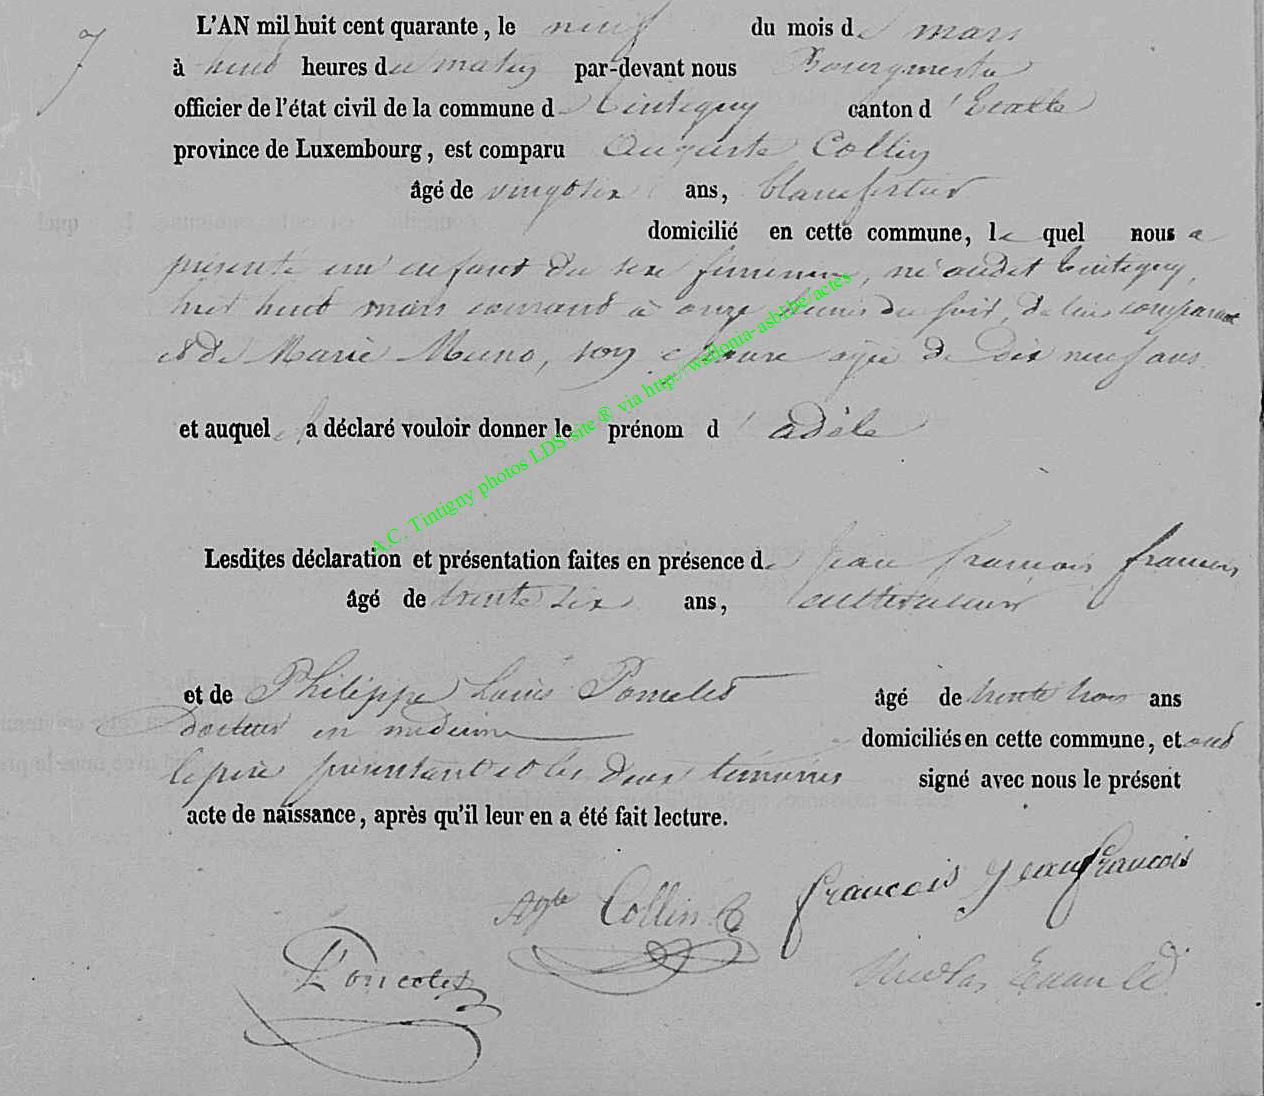 7
L'AN mil huit cent quarante, le neuf du mois de mars
à huit heures du matin par-devant nous Bourgmestre
officier de l'état civil de la commune de Tintigny canton d'Etalle
province de Luxembourg, est comparu Auguste Collin
âgé de vingt six ans,
domicilié en cette commune, le quel nous a
présenté un enfant du sexe féminin, né audit Tintigny,
huit mars courant à onze heures du soir, de lui comparant
et de Marie Muno, son épouse agée de Dix neuf ans
et auquel il a déclaré vouloir donner le prénom d'adèle
Lesdites déclaration et présentation faites en présence de jean françois françois
âgé de trente six ans, cultivateur
et de Philippe Louis âgé de trente trois ans
docteur en médecine domiciliés en cette commune, et ont
le père présentant et les deux témoins signé avec nous le présent
acte de naissance, après qu'il leur en a été fait lecture.
Agte Collin françois jean françois
A.C. Tintigny photos LDS site ® via http://wallonia-asbl.be/actes